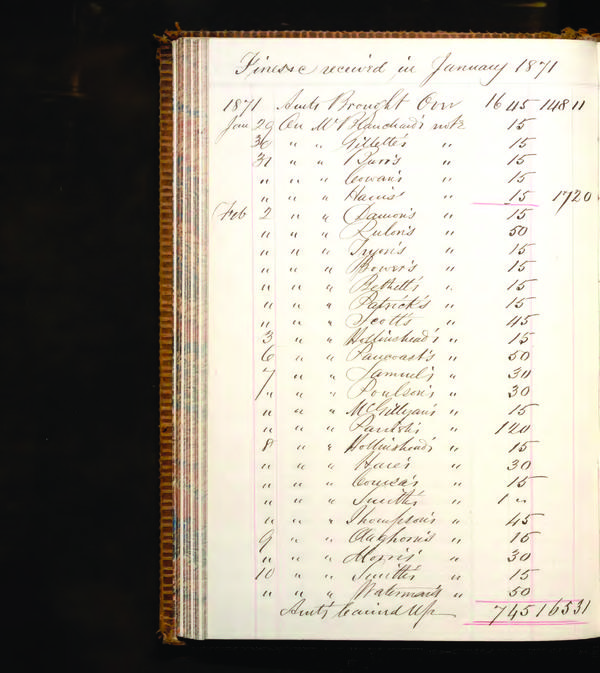 Finesse received in January 1871
1871 Amts Brought Over 16 45 148 11
Jan 29 On Mr Blanchard's note 15
30 " " Gillette's " 15
31 " " Burr's " 15
" " " Cowan's " 15
" " " " 15 17 20
Feb 2 " " Damon's " 15
" " " Rulon's " 50
" " " Tryon's " 15
" " " Bower's " 15
" " " " 15
" " " Patrick's " 15
" " " Scott's " 45
3 " " Hollinshead's " 15
6 " " Pancoast's " 50
7 " " Samuel's " 30
" " " Poulson's " 30
" " " " 15
" " " " 1 20
8 " " Hollinshead's " 15
" " " Hare's " 30
" " " " 15
" " " Smith's " 1 "
" " " Thompson's " 45
9 " " Claghorn's " 15
" " " Morris' " 30
10 " " Smith's " 15
" " " Waterman's " 50
Amts Carried Up 7 45 165 31